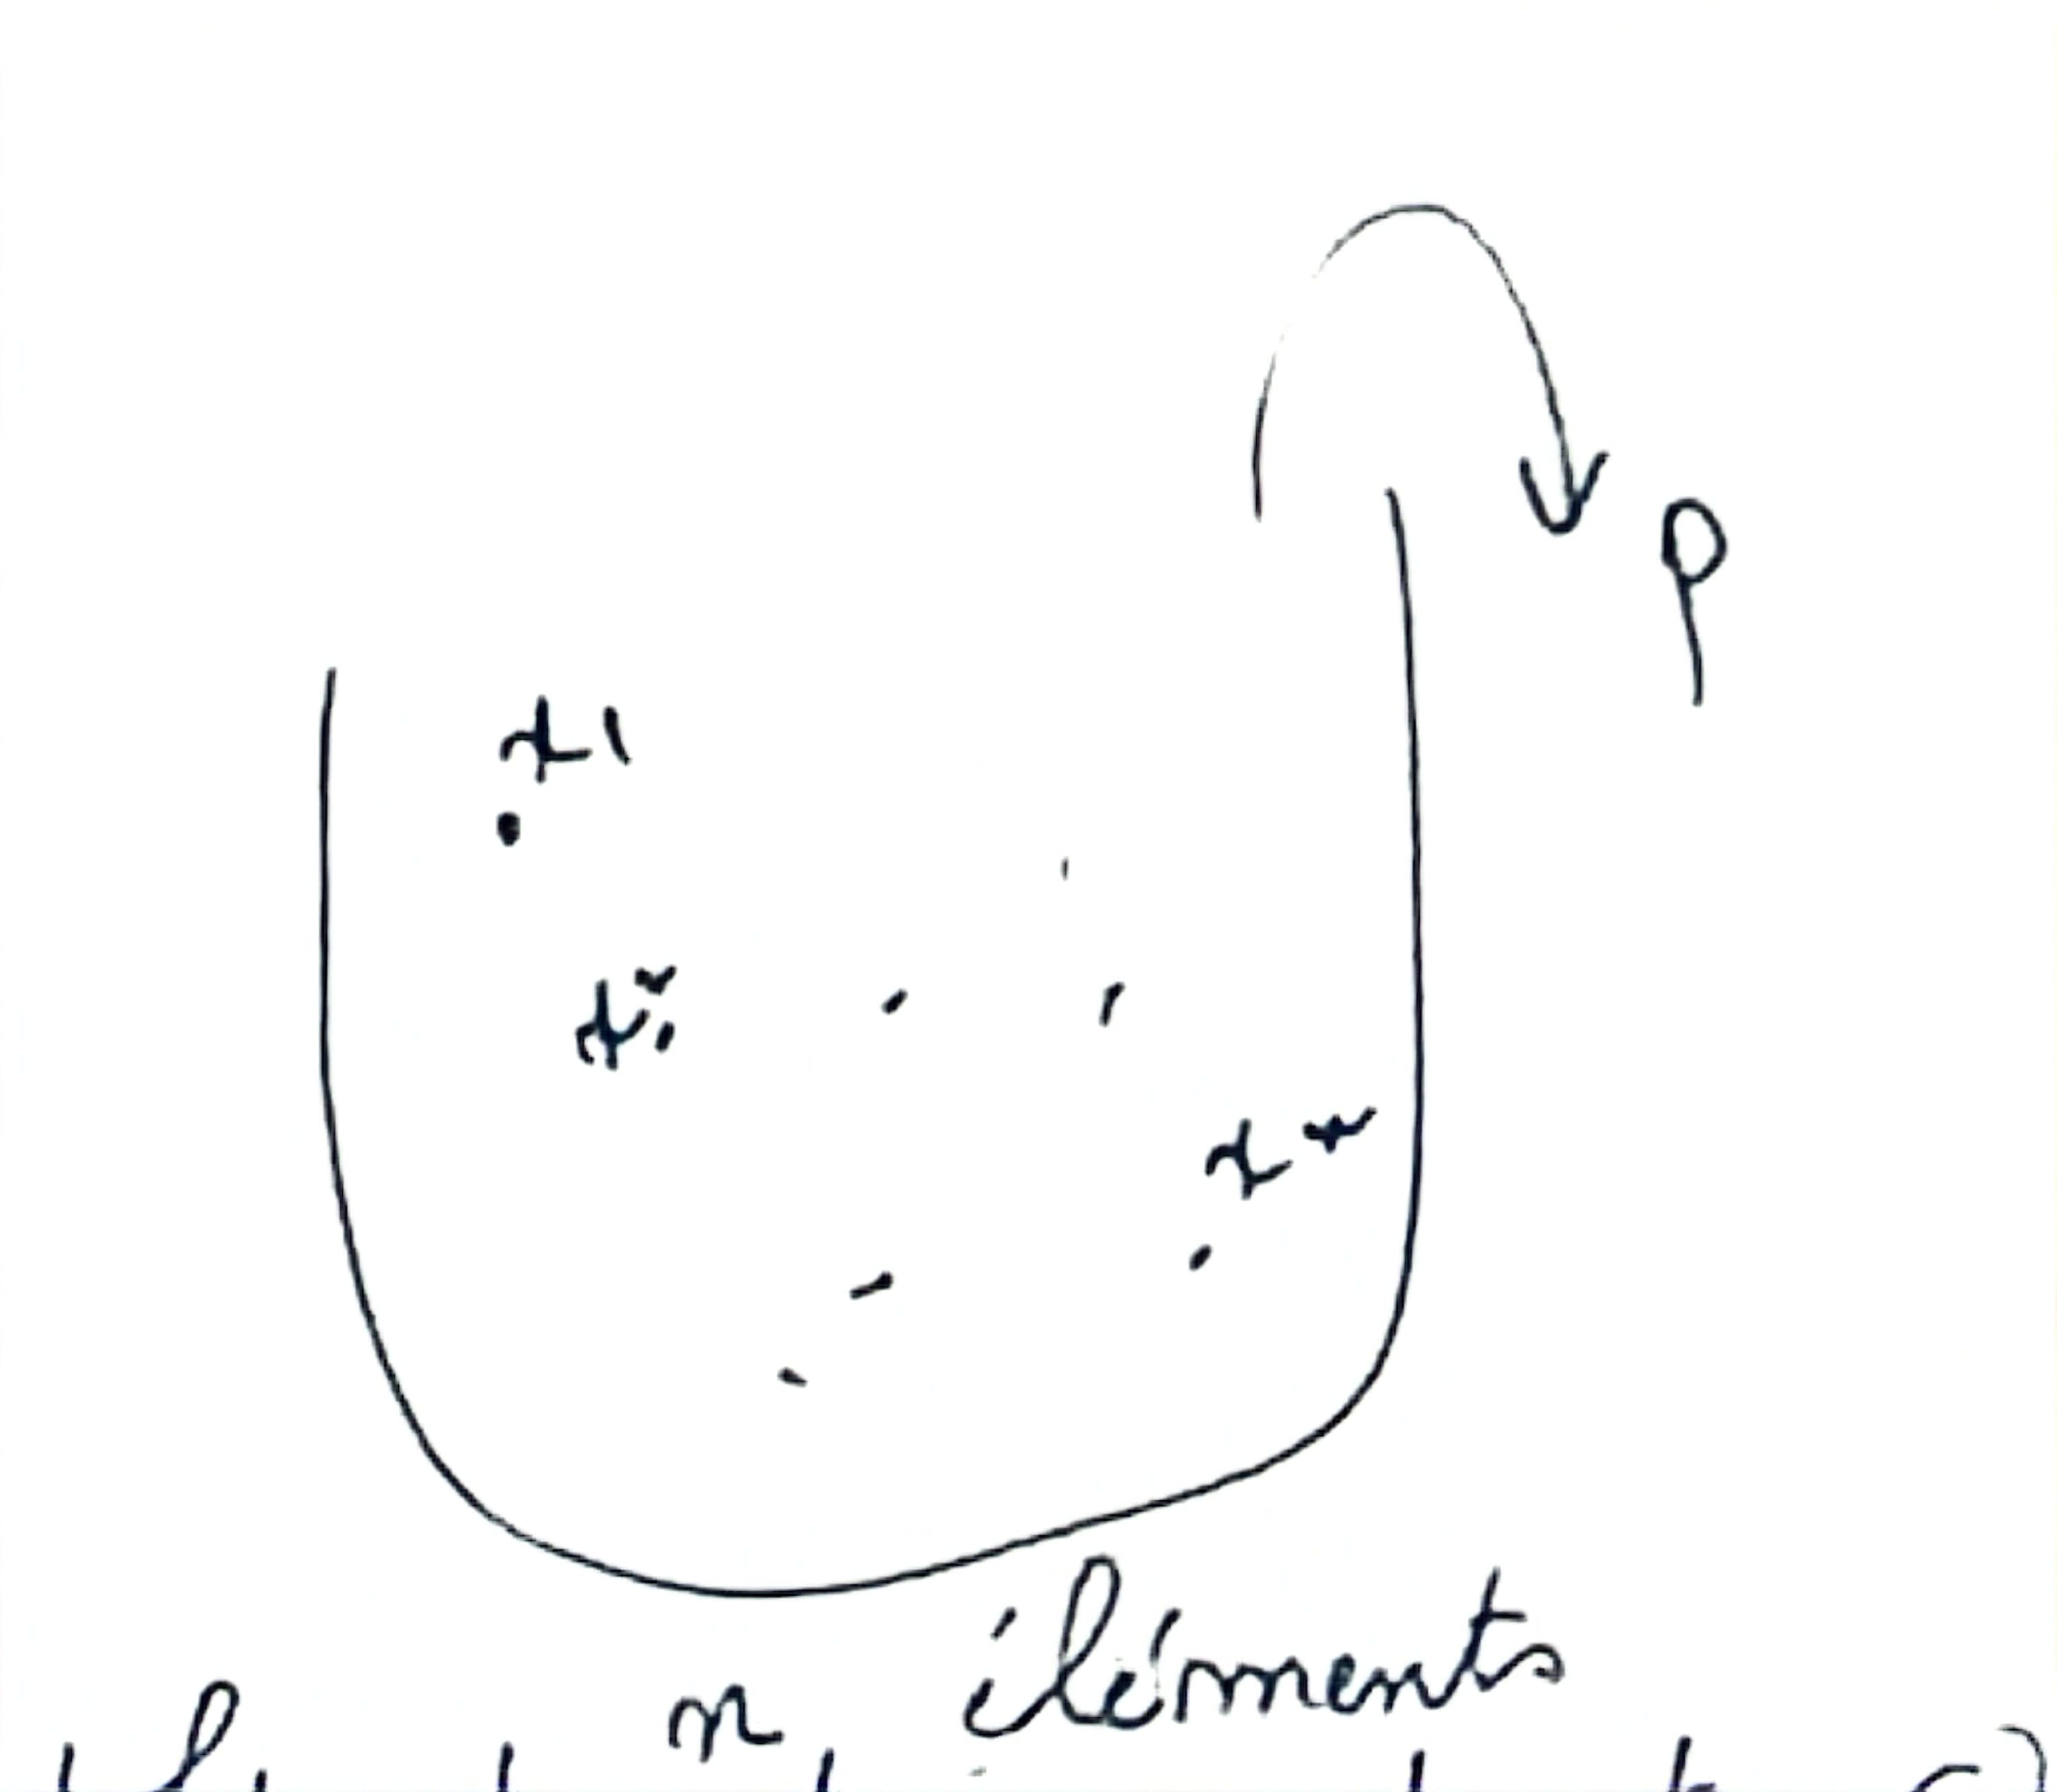 p
x1
xi
x*
n éléments